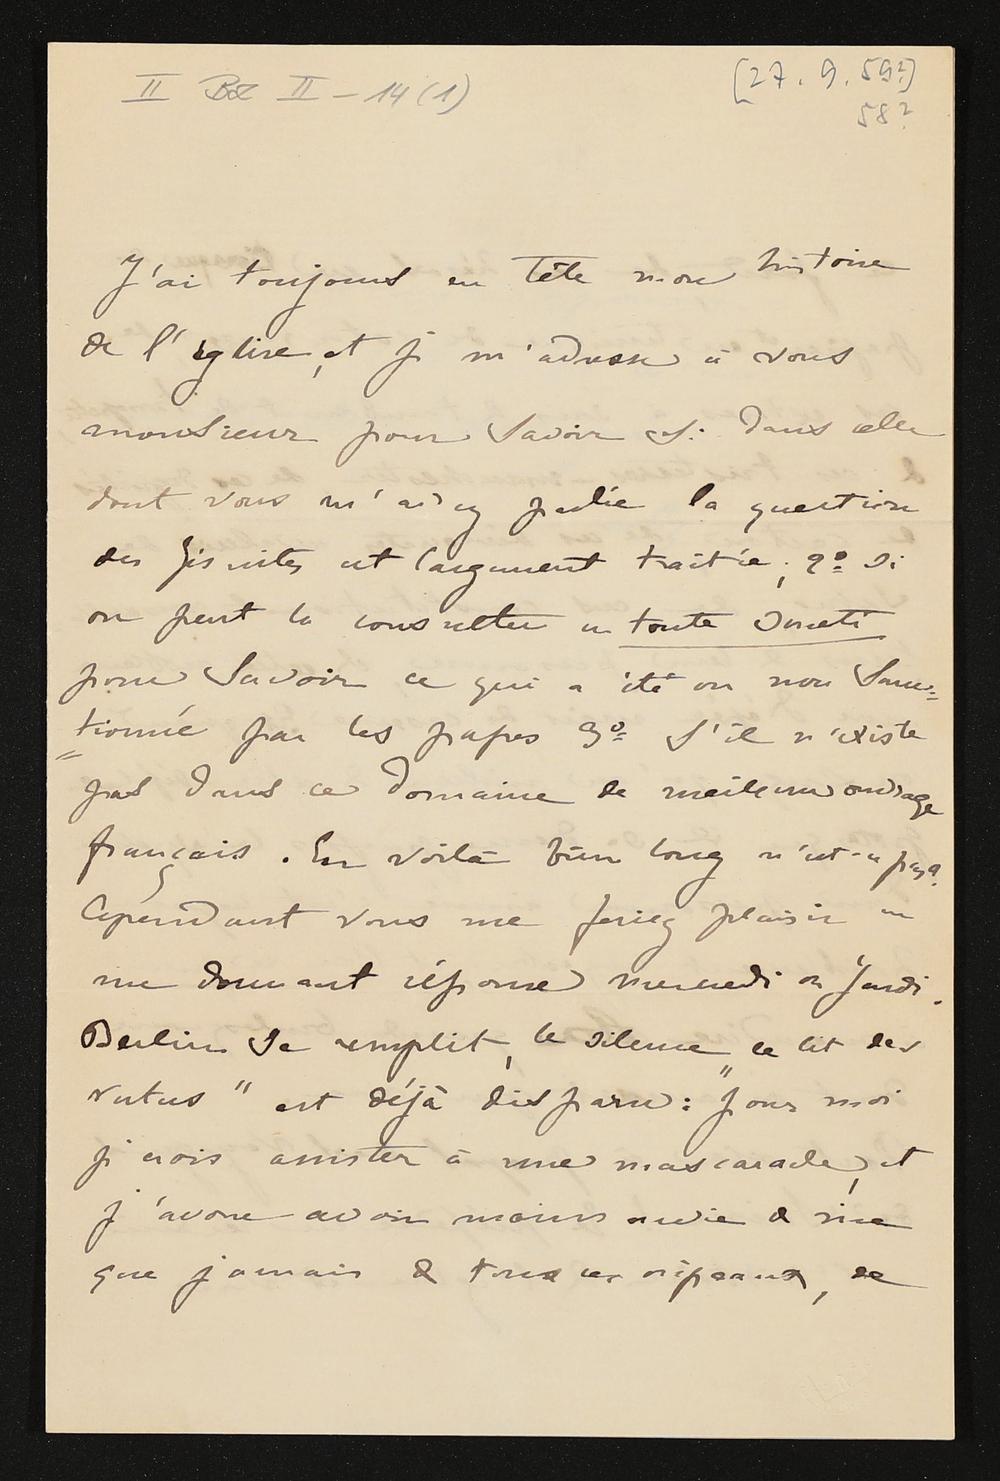 II Bd II – 14 (1)
[27. 9. 59?]
58?
J'ai toujours en tête mon histoire
de l'église, et je m'adresse à vous
monsieur pour savoir si dans celle
dont vous m'avez parlé la question
des Jésuites est largement traitée; 2º si
on peut la consulter en toute sureté
pour savoir ce qui a été ou non sanc=
=tionné par les papes 3º s'il n'existe
pas dans ce domaine de meilleur ouvrage
français. En voilà bien long n'est-ce pas?
Cependant vous me feriez plaisir en
me donnant réponse mercredi ou jeudi.
Berlin se remplit, le silence „ce lit des
vertus" est déjà disparu: pour moi
je crois assister à une mascarade, et
j'avoue avoir moins envie de rire
que jamais de tous ces oripeaux, de